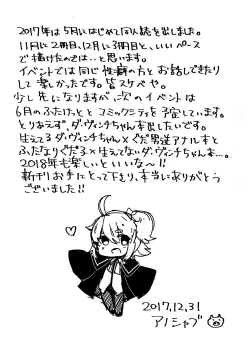 2017年は5月にはじめて同人誌を出しました。
11月に2冊目、12月に3冊目と、いいペース
で描けたのでは…と思います。
イベントでは同じ性癖の方とお話しできたり
して楽しかったです。皆スケベや。
少し先になりますが、次のイベントは
6月のふたけっととコミックシティを予定しています。
とりあえず、ダ・ヴィンチちゃん本出したいです。
生えてるダ・ヴィンチちゃん×ぐだ男逆アナル本と
ふたなりぐだ子×生えてないダ・ヴィンチちゃん本…。
2018年も楽しいといいな〜!!
新刊お手にとって下さり、本当にありがとう
ございました!!
2017.12.31
アノシャブ